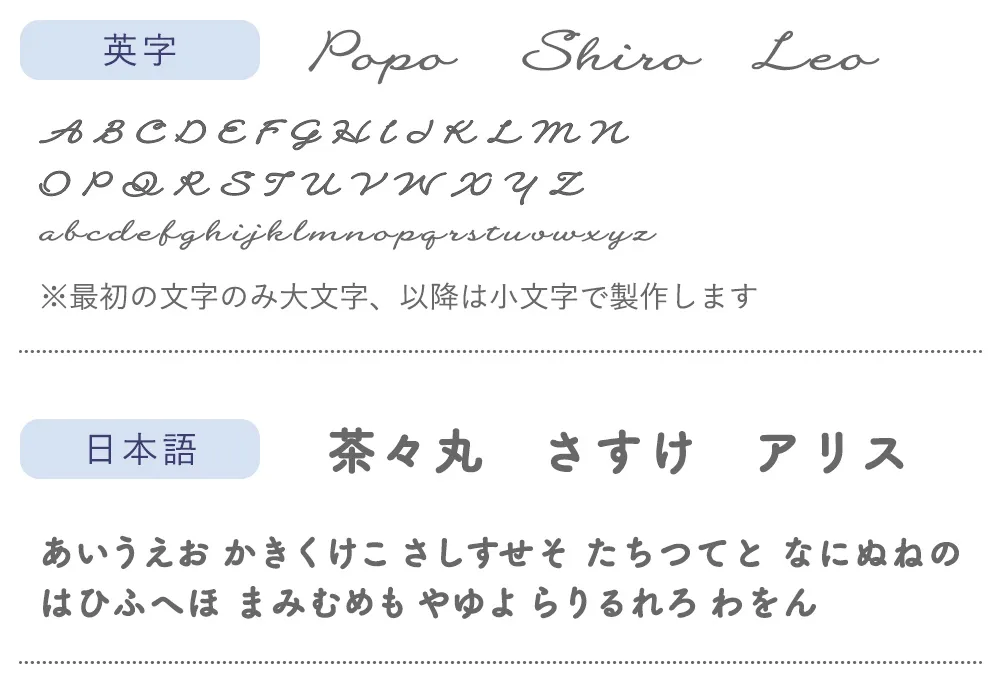 英字 Popo Shiro Leo
A B C D E F G H I J K L M N
O P Q R S T U V W X Y Z
abcdefghijklmnopqrstuvwxyz
※最初の文字のみ大文字、以降は小文字で製作します
日本語 茶々丸 さすけ アリス
あいうえお かきくけこ さしすせそ たちつてと なにぬねの
はひふへほ まみむめも やゆよ らりるれろ わをん